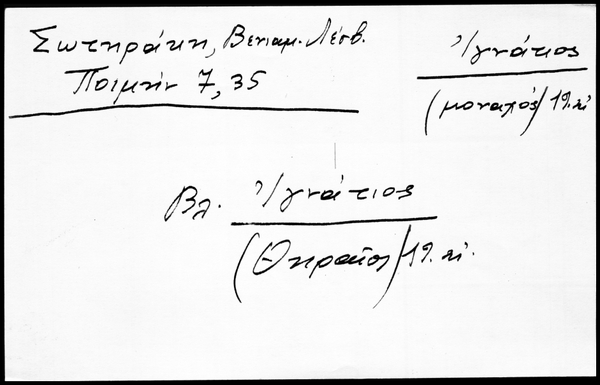 Σωτηράκη, Βενιαμ. Λέσβ.
Ποιμήν 7, 35
Ἰγνάτιος
(μοναχός) 19. αἰ.
Βλ. Ἰγνάτιος
(Θηραῖος) 19. αἰ.